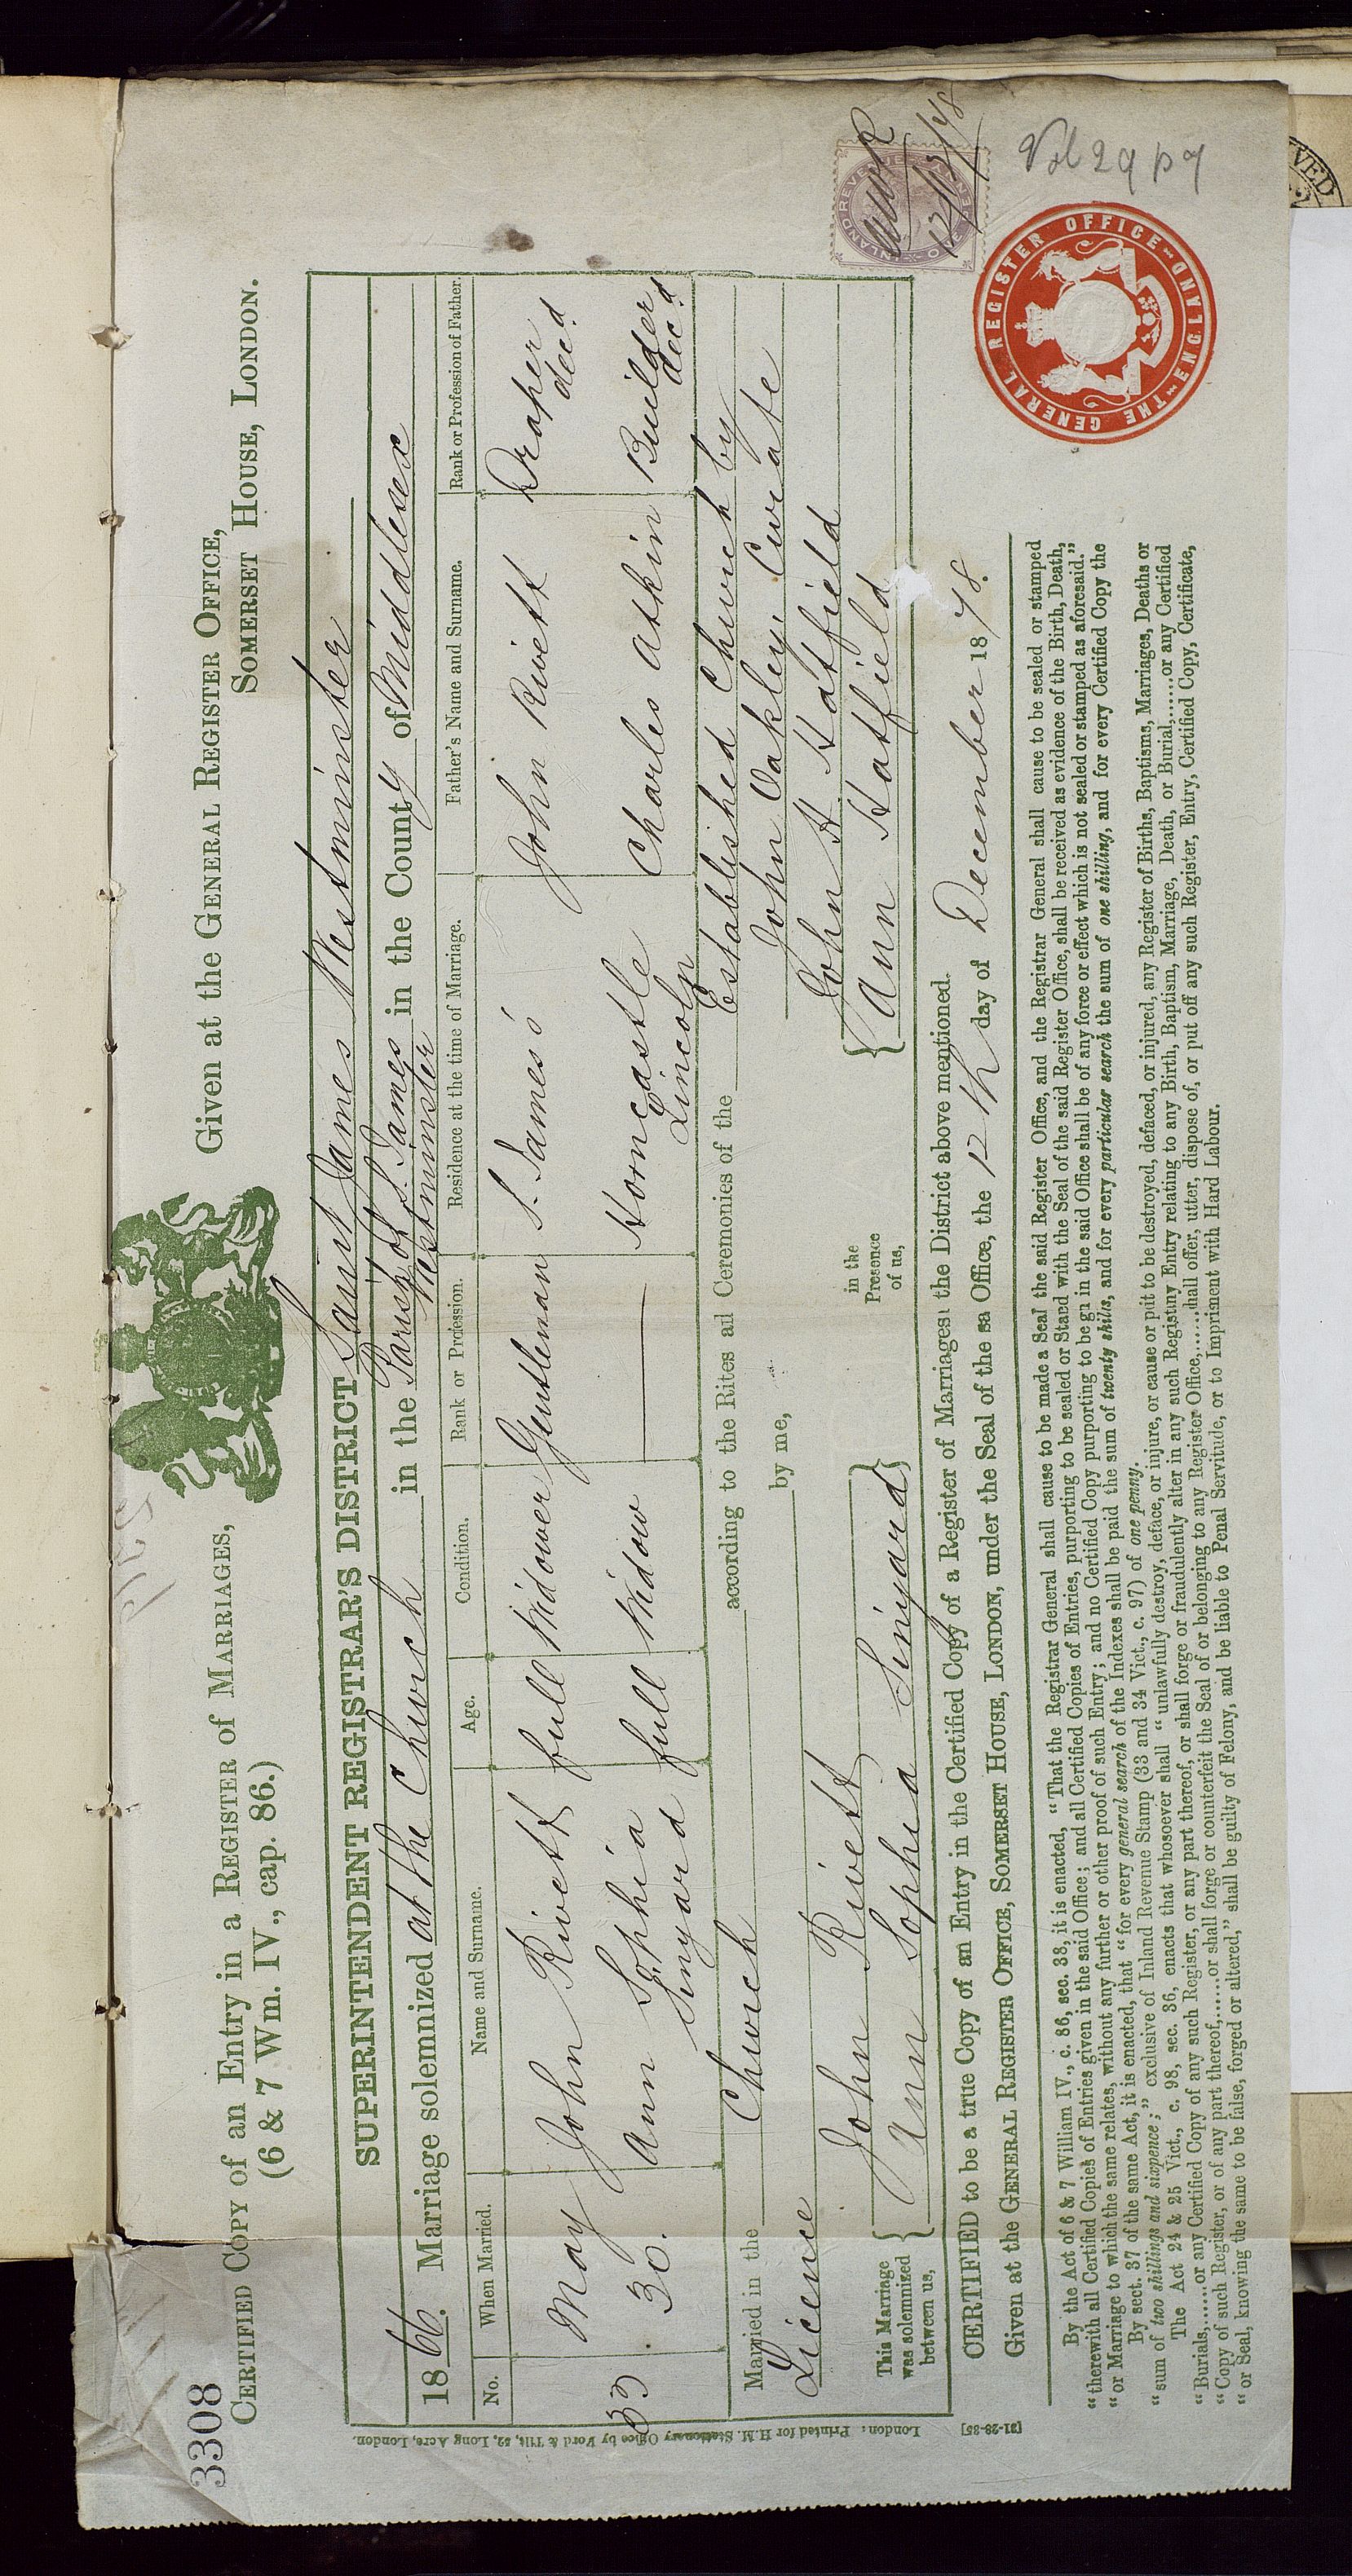 3308
CERTIFIED COPY of an Entry in a REGISTER of MARRIAGES,
(6 & 7 Wm. IV., cap. 86.)
Given at the GENERAL REGISTER OFFICE,
SOMERSET HOUSE, LONDON.
SUPERINTENDENT REGISTRAR'S DISTRICT Saint James Westminster
1866. Marriage solemnized at the Church in the Parish of S. James Westminster in the County of Middlesex
No. When Married. Name and Surname. Age. Condition. Rank or Profession. Residence at the time of Marriage. Father's Name and Surname. Rank or Profession of Father.
33 May 30. John Rivett full Widower Gentleman S. James's John Rivett Draper decd
Ann Sophia Sinyard full Widow — Horncastle Lincoln Charles Atkin Builder decd
Married in the Church according to the Rites ad Ceremonies of the Established Church by
Licence by me, John Oakley, Curate
This Marriage was solemnized between us, { John Rivett
Ann Sophia Sinyard } in the Presence of us, { John H Hatfield
Ann Hatfield
CERTIFIED to be a true Copy of an Entry in the Certified Copy of a Register of Marriages the District above mentioned.
Given at the GENERAL REGISTER OFFICE, SOMERSET HOUSE, LONDON, under the Seal of the sa Office, the 12th day of December 1878.
By the Act of 6 & 7 William IV., c. 86, sec. 38, it is enacted, "That the Registrar General shall cause to be made a Seal the said Register Office, and the Registrar General shall cause to be sealed or stamped
"therewith all Certified Copies of Entries given in the said Office; and all Certified Copies of Entries, purporting to be sealed or Stamed with the Seal of the said Register Office, shall be received as evidence of the Birth, Death,
"or Marriage to which the same relates, without any further or other proof of such Entry; and no Certified Copy purporting to be gn in the said Office shall be of any force or effect which is not sealed or stamped as aforesaid."
By sect. 37 of the same Act, it is enacted, that "for every general search of the Indexes shall be paid the sum of twenty shills, and for every particular search the sum of one shilling, and for every Certified Copy the
"sum of two shillings and sixpence;" exclusive of Inland Revenue Stamp (33 and 34 Vict., c. 97) of one penny.
The Act 24 & 25 Vict., c. 98, sec. 36, enacts that whosoever shall "unlawfully destroy, deface, or injure, or cause or pit to be destroyed, defaced, or injured, any Register of Births, Baptisms, Marriages, Deaths or
"Burials,......or any Certified Copy of any such Register, or any part thereof, or shall forge or fraudulently alter in any such Register any Entry relating to any Birth, Baptism, Marriage, Death, or Burial,......or any Certified
"Copy of such Register, or of any part thereof,......or shall forge or counterfeit the Seal of or belonging to any Register Office,......hall offer, utter, dispose of, or put off any such Register, Entry, Certified Copy, Certificate,
"or Seal, knowing the same to be false, forged or altered," shall be guilty of Felony, and be liable to Penal Servitude, or to Imprisment with Hard Labour.
London: Printed for H.M. Stationery Office by Ford & Tilt, 52, Long Acre, London.
[21-28-35]
INLAND REVENUE
12/12/78
THE GENERAL REGISTER OFFICE ENGLAND
Vol 29 p 9